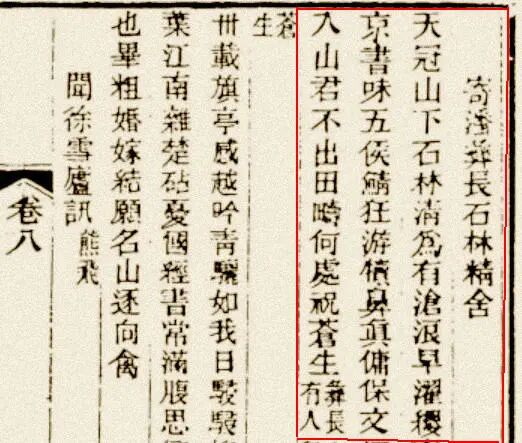 寄潘彝長石林精舍
天冠山下石林清爲有滄浪早濯纓
京書味五侯鯖狂游犢鼻眞傭保文
入山君不出田疇何處祝蒼生彝長有人
蒼生
卅載旗亭感越吟青驪如我日駸駸
葉江南雜楚砧憂國經書常滿腹思
也畢粗婚嫁結願名山逐向禽
聞徐雪廬訊熊飛
卷八